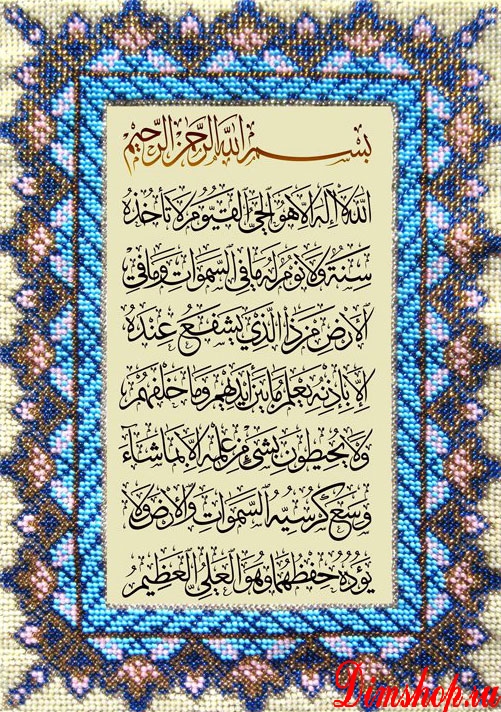 بِسْمِ اللَّهِ الرَّحْمَنِ الرَّحِيمِ
اللَّهُ لَا إِلَهَ إِلَّا هُوَ الْحَيُّ الْقَيُّومُ لَا تَأْخُذُهُ
سِنَةٌ وَلَا نَوْمٌ لَهُ مَا فِي السَّمَوَاتِ وَمَا فِي
الْأَرْضِ مَنْ ذَا الَّذِي يَشْفَعُ عِنْدَهُ
إِلَّا بِإِذْنِهِ يَعْلَمُ مَا بَيْنَ أَيْدِيهِمْ وَمَا خَلْفَهُمْ
وَلَا يُحِيطُونَ بِشَيْءٍ مِنْ عِلْمِهِ إِلَّا بِمَا شَاءَ
وَسِعَ كُرْسِيُّهُ السَّمَوَاتِ وَالْأَرْضَ وَلَا
يَؤُدُهُ حِفْظُهُمَا وَهُوَ الْعَلِيُّ الْعَظِيمُ
Dimshop.ru